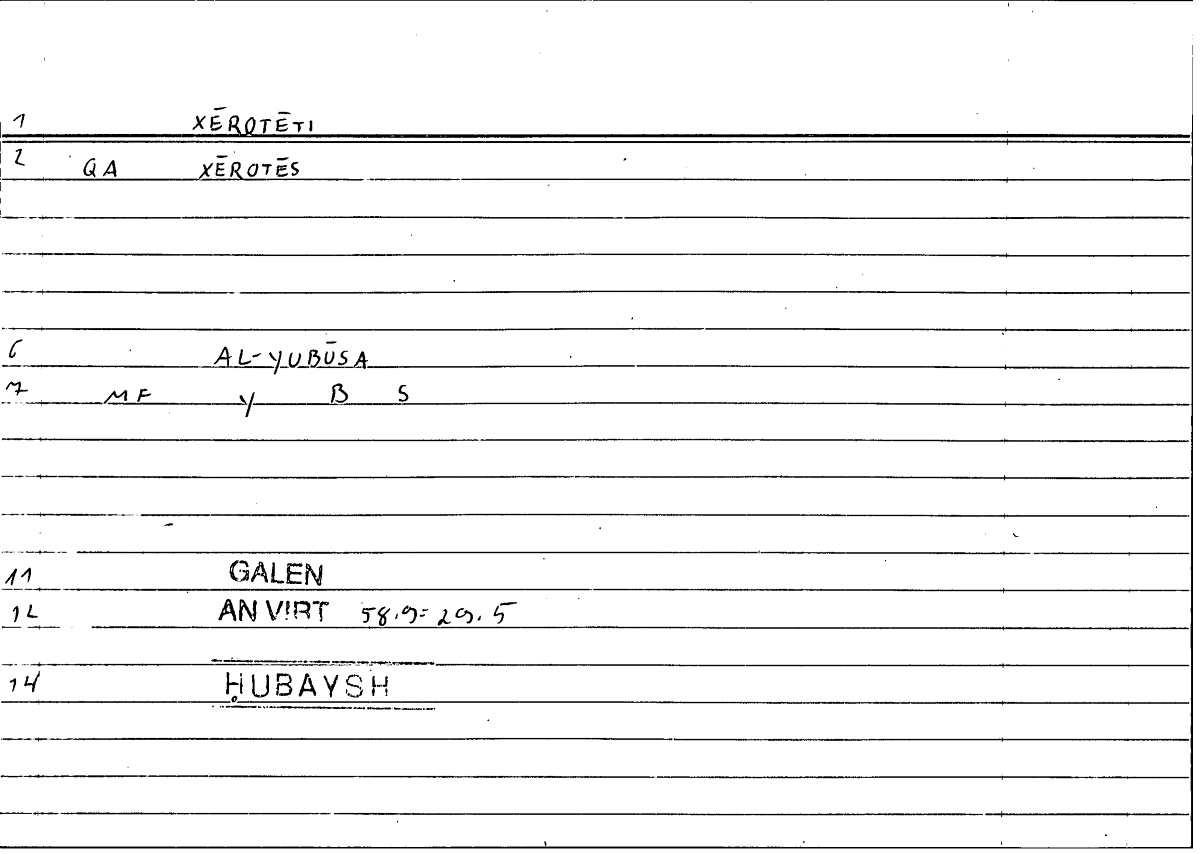 1 XĒROTĒTI
2 QA XĒROTĒS
6 AL-YUBŪSA
7 MF Y B S
11 GALEN
12 AN VIRT 58.9=29.5
14 ḤUBAYSH